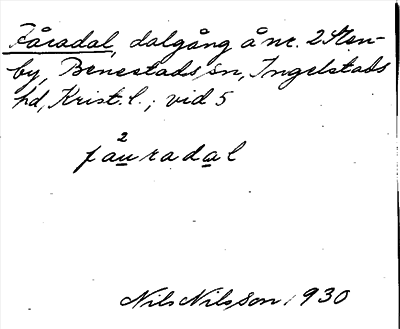 Fåradal, dalgång å nr. 2 Sten-
by, Benestads sn, Ingelstads
hd, Krist. l.; vid 5
2
fauradal
Nils Nilsson 1930